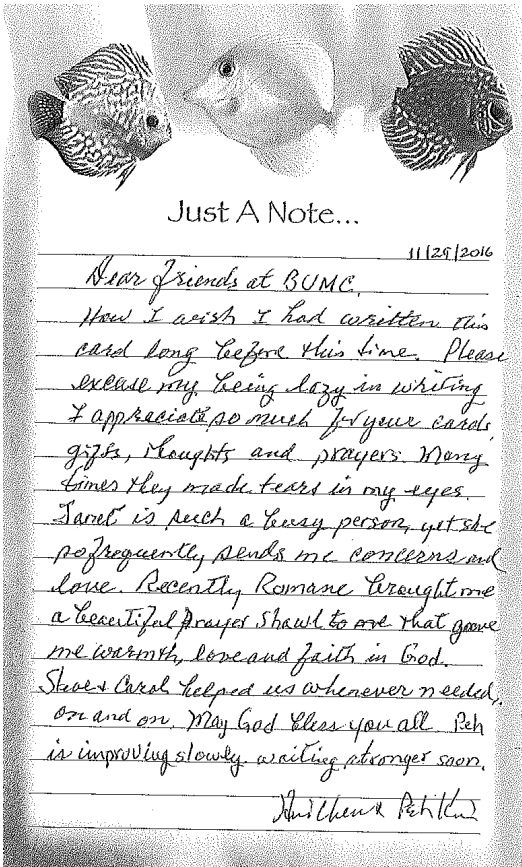 Just A Note...
11/29/2016
Dear friends at BUMC,
How I wish I had written this
card long before this time. Please
excuse my being lazy in writing
I appreciate so much for your cards,
gifts, thoughts and prayers. Many
times they made tears in my eyes.
Janet is such a busy person, yet she
so frequently sends me concerns and
love. Recently Romane brought me
a beautiful prayer shawl to me that gave
me warmth, love and faith in God.
Steve & Carol helped us whenever needed,
on and on. May God bless you all Peh
is improving slowly. waiting stronger soon.